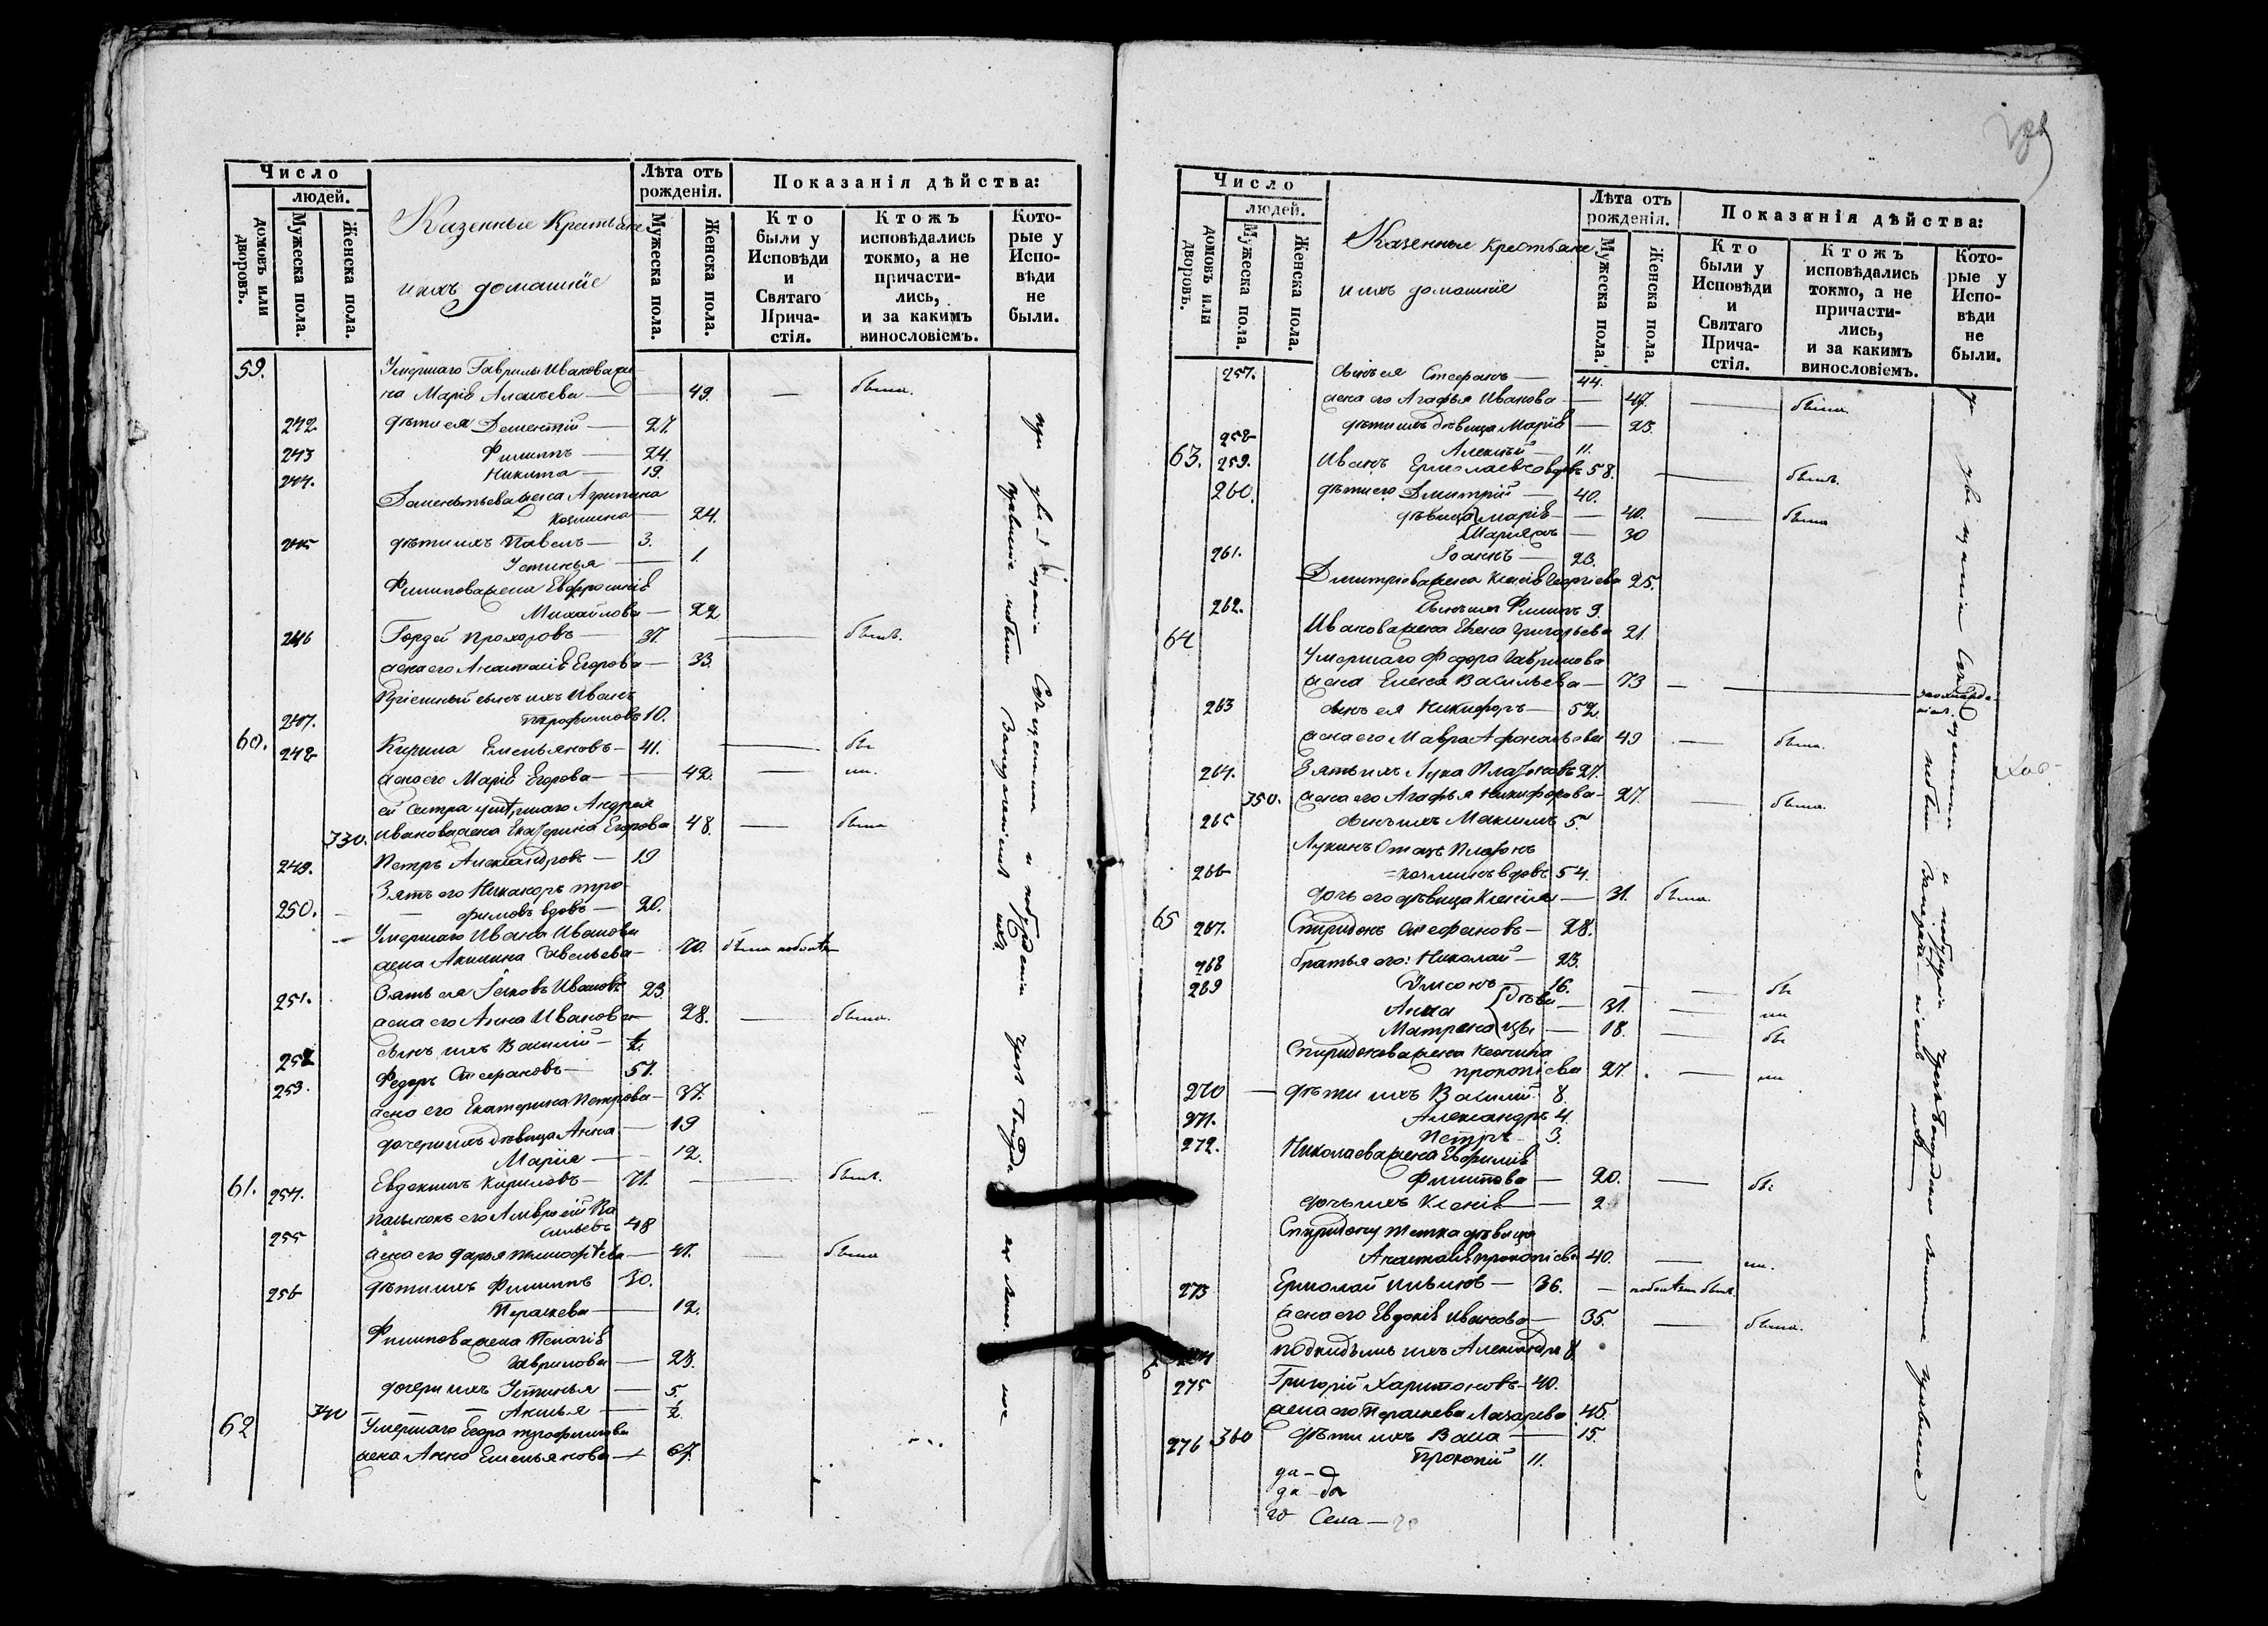 Число
людей.
домовъ или дворовъ.
Мужеска пола.
Женска пола.
Казенные Крестьяне
и ихъ домашніе
Лѣта отъ рожденія.
Мужеска пола.
Женска пола.
Показанія дѣйства:
Кто были у Исповѣди и Святаго Прича-стія.
Ктожъ исповѣдались токмо, а не причасти-лись, и за какимъ винословіемъ.
Кото-рые у Испо-вѣди не были.
59. Умершаго Гаврилы Иванова же
на Марія Алексѣева — 49. — была.
242 дѣти ея Дементій — 27.
243 Филиппъ — 24.
244. Никита — 19.
Дементьева жена Агрипина
Козмина — 24.
245 дѣти ихъ Павелъ — 3.
Устинья — 1.
Филипова жена Евфросинія
Михайлова — 22
246 Гордей Прохоровъ — 37. — былъ.
жена его Анастасія Егорова — 33.
Пріемный сынъ ихъ Иванъ
247. Трофимовъ 10.
60. 248 Кирила Емельяновъ — 41. — бы
жена его Марія Егорова — 42. — ли.
ей сестра умершаго Андрея
330. Иванова жена Екатерина Егорова 48. — была
249. Петръ Александровъ — 19
Зять его Никаноръ Тро-
250. фимовъ вдовъ — 20.
Умершаго Ивана Иванова
жена Акилина Савельева — 70. была
251. Зять ея Іаковъ Ивановъ 23
жена его Анна Иванова 28. — была.
252 сынъ ихъ Василій — ½
253. Федоръ Стефановъ — 51.
жена его Екатерина Петрова — 37.
дочери ихъ дѣвица Анна — 19
Марія — 12.
61. 254. Евдокимъ Кириловъ — 71. — былъ.
Пасынокъ его Амвросій Ва
255 сильевъ 48
жена его Дарья Тимофѣева — 47. — была
256 дѣти ихъ Филиппъ 30.
Параскева — 12.
Филипова жена Пелагія
Гаврилова — 28.
дочери ихъ Устинья — 5.
340 Акилья — ½
62 Умершаго Егора Трофимова
жена Анна Емельянова — 67.
Число
людей.
домовъ или дворовъ.
Мужеска пола.
Женска пола.
Казенные крестьяне
и ихъ домашніе
Лѣта отъ рожденія.
Мужеска пола.
Женска пола.
Показанія дѣйства:
Кто были у Исповѣди и Святаго Прича-стія.
Ктожъ исповѣдались токмо, а не причасти-лись, и за какимъ винословіемъ.
Кото-рые у Испо-вѣди не были.
257. сынъ ея Стефанъ — 44.
жена его Агафья Иванова — 47. — была.
дѣти ихъ дѣвица Марія — 23.
258 Алексѣй — 11.
63. 259. Иванъ Ермолаевъ вдовъ 58. — былъ.
260. дѣти его Дмитрій — 40.
дѣвица Марія — 40. — была
Маріамъ — 30
261. Іоаннъ — 23.
Дмитріева жена Ксенія Георгіева 25.
262. сынъ ихъ Филипъ 9.
Иванова жена Елена Григорьева 21.
64 Умершаго Федора Гаврилова
жена Елена Васильева — 73
263 сынъ ея Никифоръ — 52.
жена его Мавра Афонасьева 49 — была.
264. Зять ихъ Лука Платоновъ 27.
350. жена его Агафья Никифорова — 27. — была.
265 сынъ ихъ Максимъ 5.
Лукинъ Отецъ Платонъ
266 Козминъ вдовъ 54.
дочь его дѣвица Ксенія — 31. была.
65 267. Спиридонъ Стефановъ — 28.
268 братья его: Николай — 23.
269 Симеонъ — 16. — бы
Анна дѣви — 31. — ли
Матрена цы — 18. — бы
Спиридонова жена Ксенія
Прокопіева 27. — ли
270 — дѣти ихъ Василій 8.
271. Александръ 4.
272. Петръ 3.
Николаева жена Евфимія
Филипова — 20. — бы
дочь ихъ Ксенія — 2
Спиридону тетка дѣвица
Анастасія Прокопіева 40. — ли.
273 Ермолай Ильинъ — 36. — былъ.
жена его Евдокія Иванова — 35. — была.
подкидышъ ихъ Александръ 8.
275 Григорій Харитоновъ — 40.
жена его Параскева Лазарева 45.
360 дѣти ихъ Васса — 15.
276 Прокопій 11.
го Села —